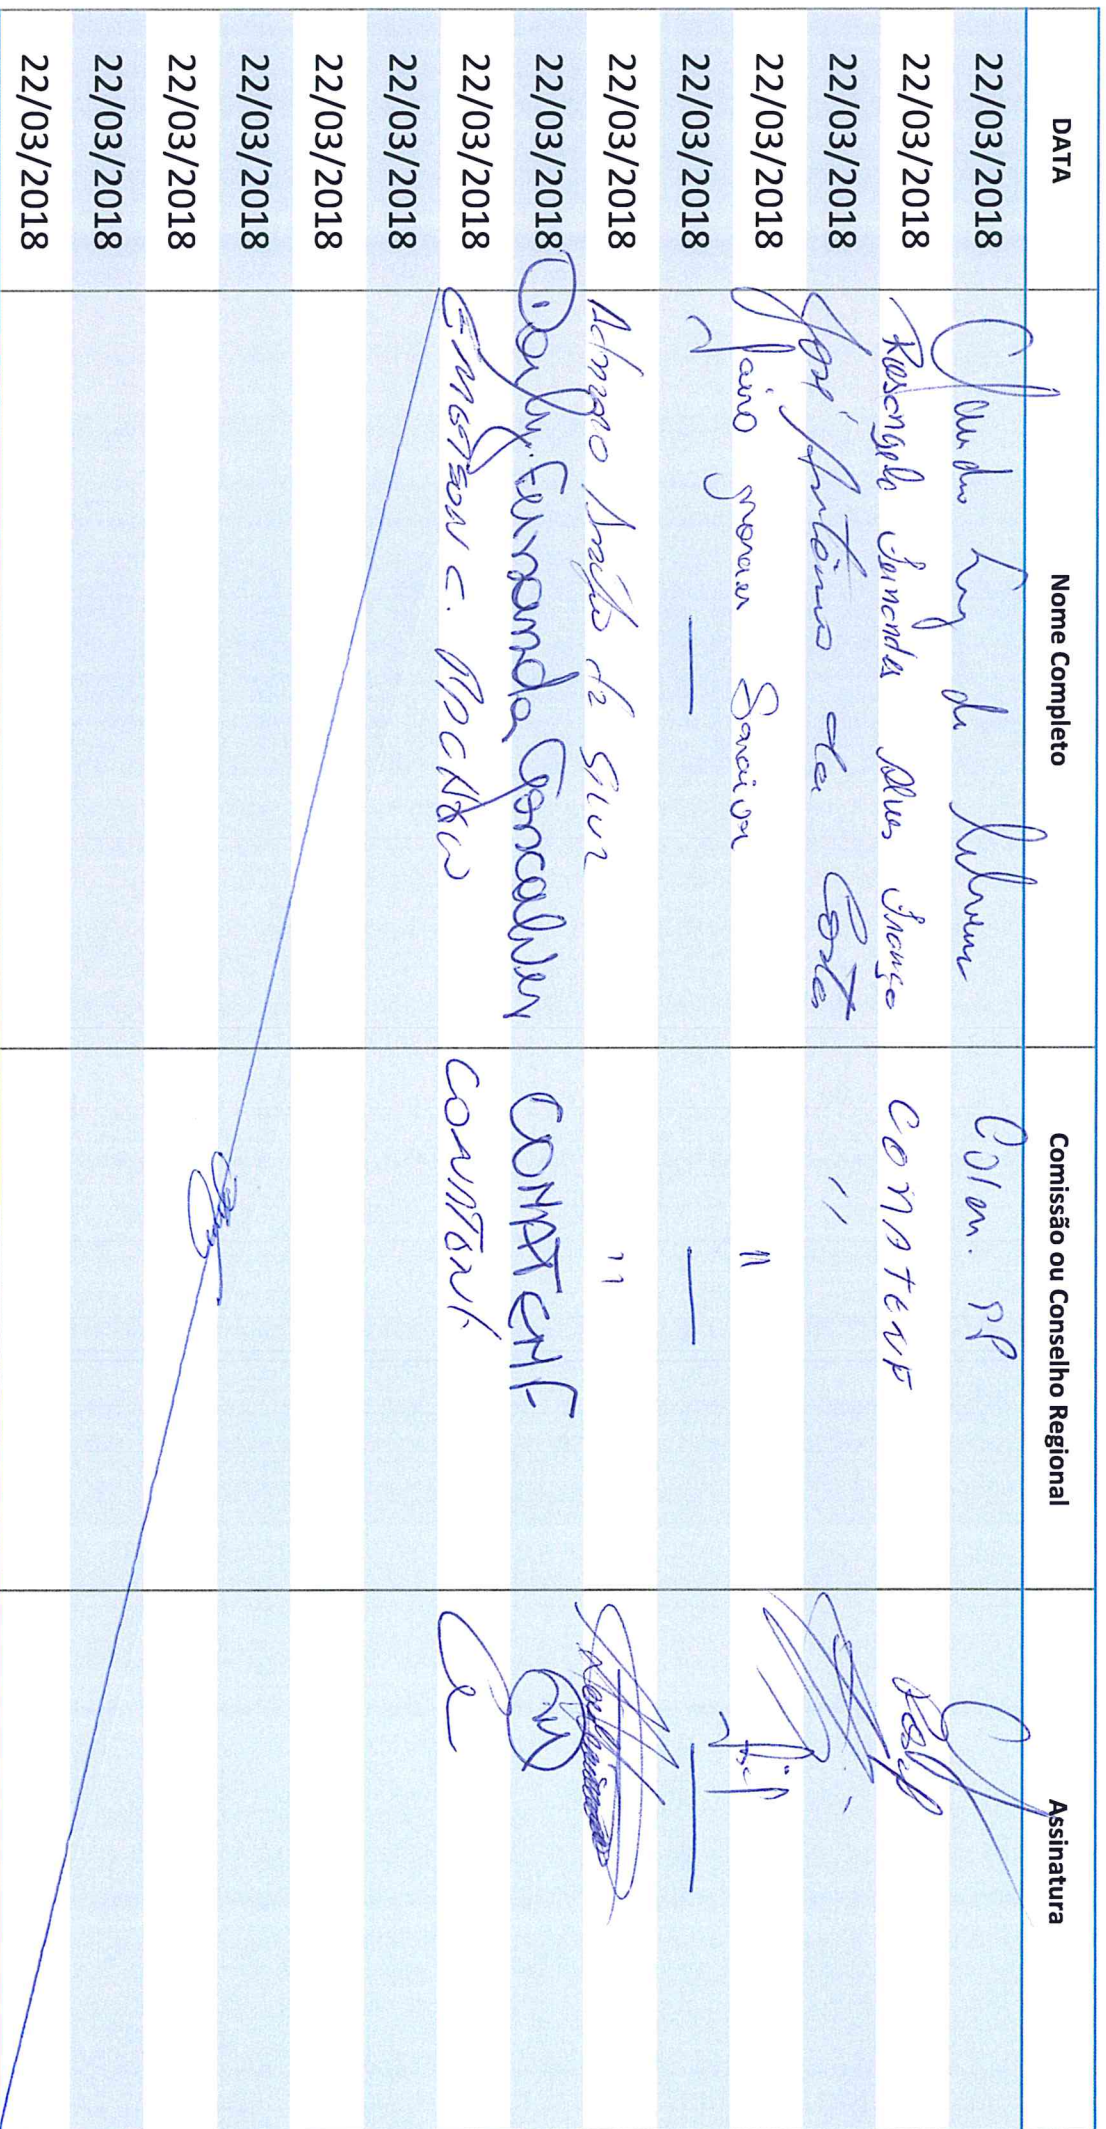 DATA Nome Completo Comissão ou Conselho Regional Assinatura
22/03/2018 Claudio Luiz de
22/03/2018 Rosangela Fernandes Alves França CONATENF
22/03/2018 José Antônio da Costa "
22/03/2018 Jairo Moraes Saraiva "
22/03/2018 — — —
22/03/2018 Adriano Araújo da Silva "
22/03/2018 Fernanda Goncalves CONATENF
22/03/2018 EMERSON C. PACHECO CONATENF
22/03/2018
22/03/2018
22/03/2018
22/03/2018
22/03/2018
22/03/2018